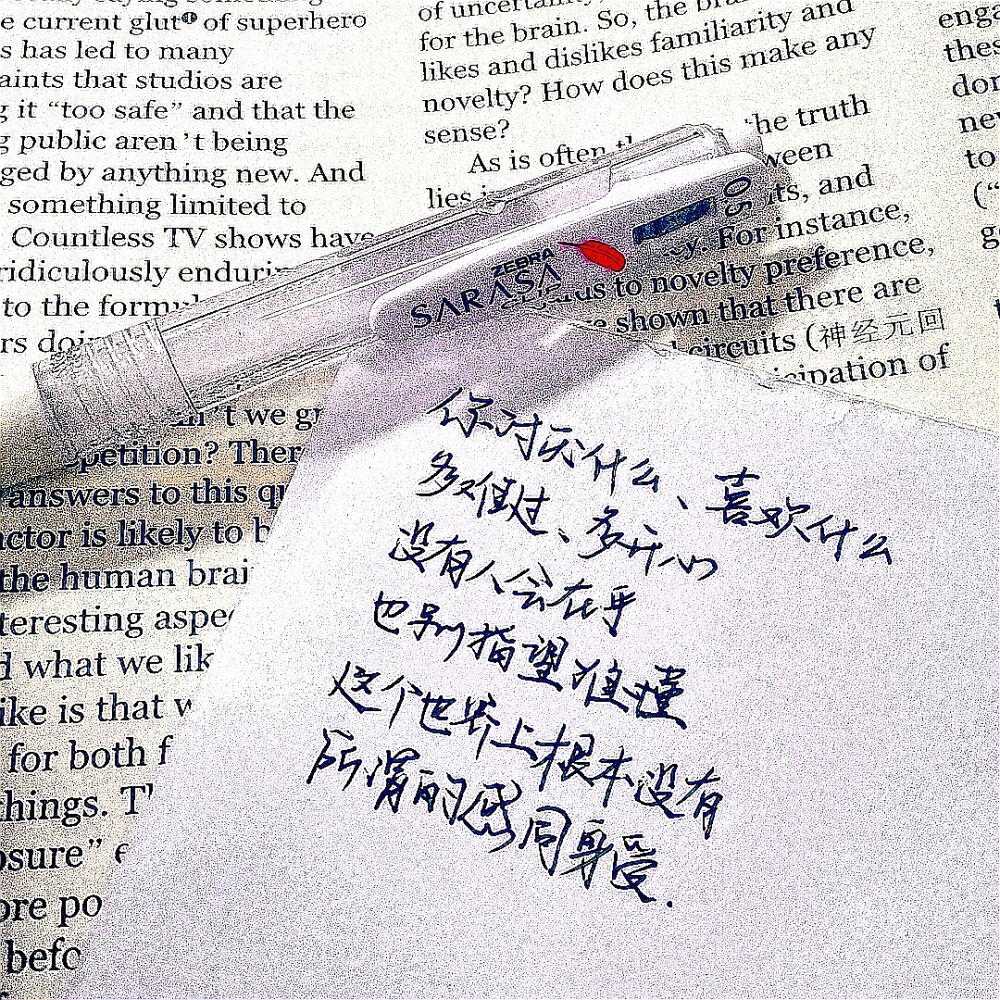 e current glut❶ of superhero
s has led to many
aints that studios are
g it “too safe” and that the
g public aren’t being
ged by anything new. And
something limited to
Countless TV shows have
ridiculously enduri
to the formul
rs doi
n’t we gr
petition? Ther
answers to this qu
actor is likely to b
the human brai
teresting aspe
d what we lik
ike is that w
for both f
hings. T
osure” e
ore po
befo
of uncertainty
for the brain. So, the bra
likes and dislikes familiarity and
novelty? How does this make any
sense?
As is often the truth
lies ween
ts, and
y. For instance,
us to novelty preference,
shown that there are
circuits (神经元回
icipation of
enga
thes
don
nev
to
(“
g
ZEBRA
SARASA
0.5
你讨厌什么、喜欢什么
多难过、多开心
没有人会在乎
也别指望谁懂
这个世界上根本没有
所谓的感同身受.